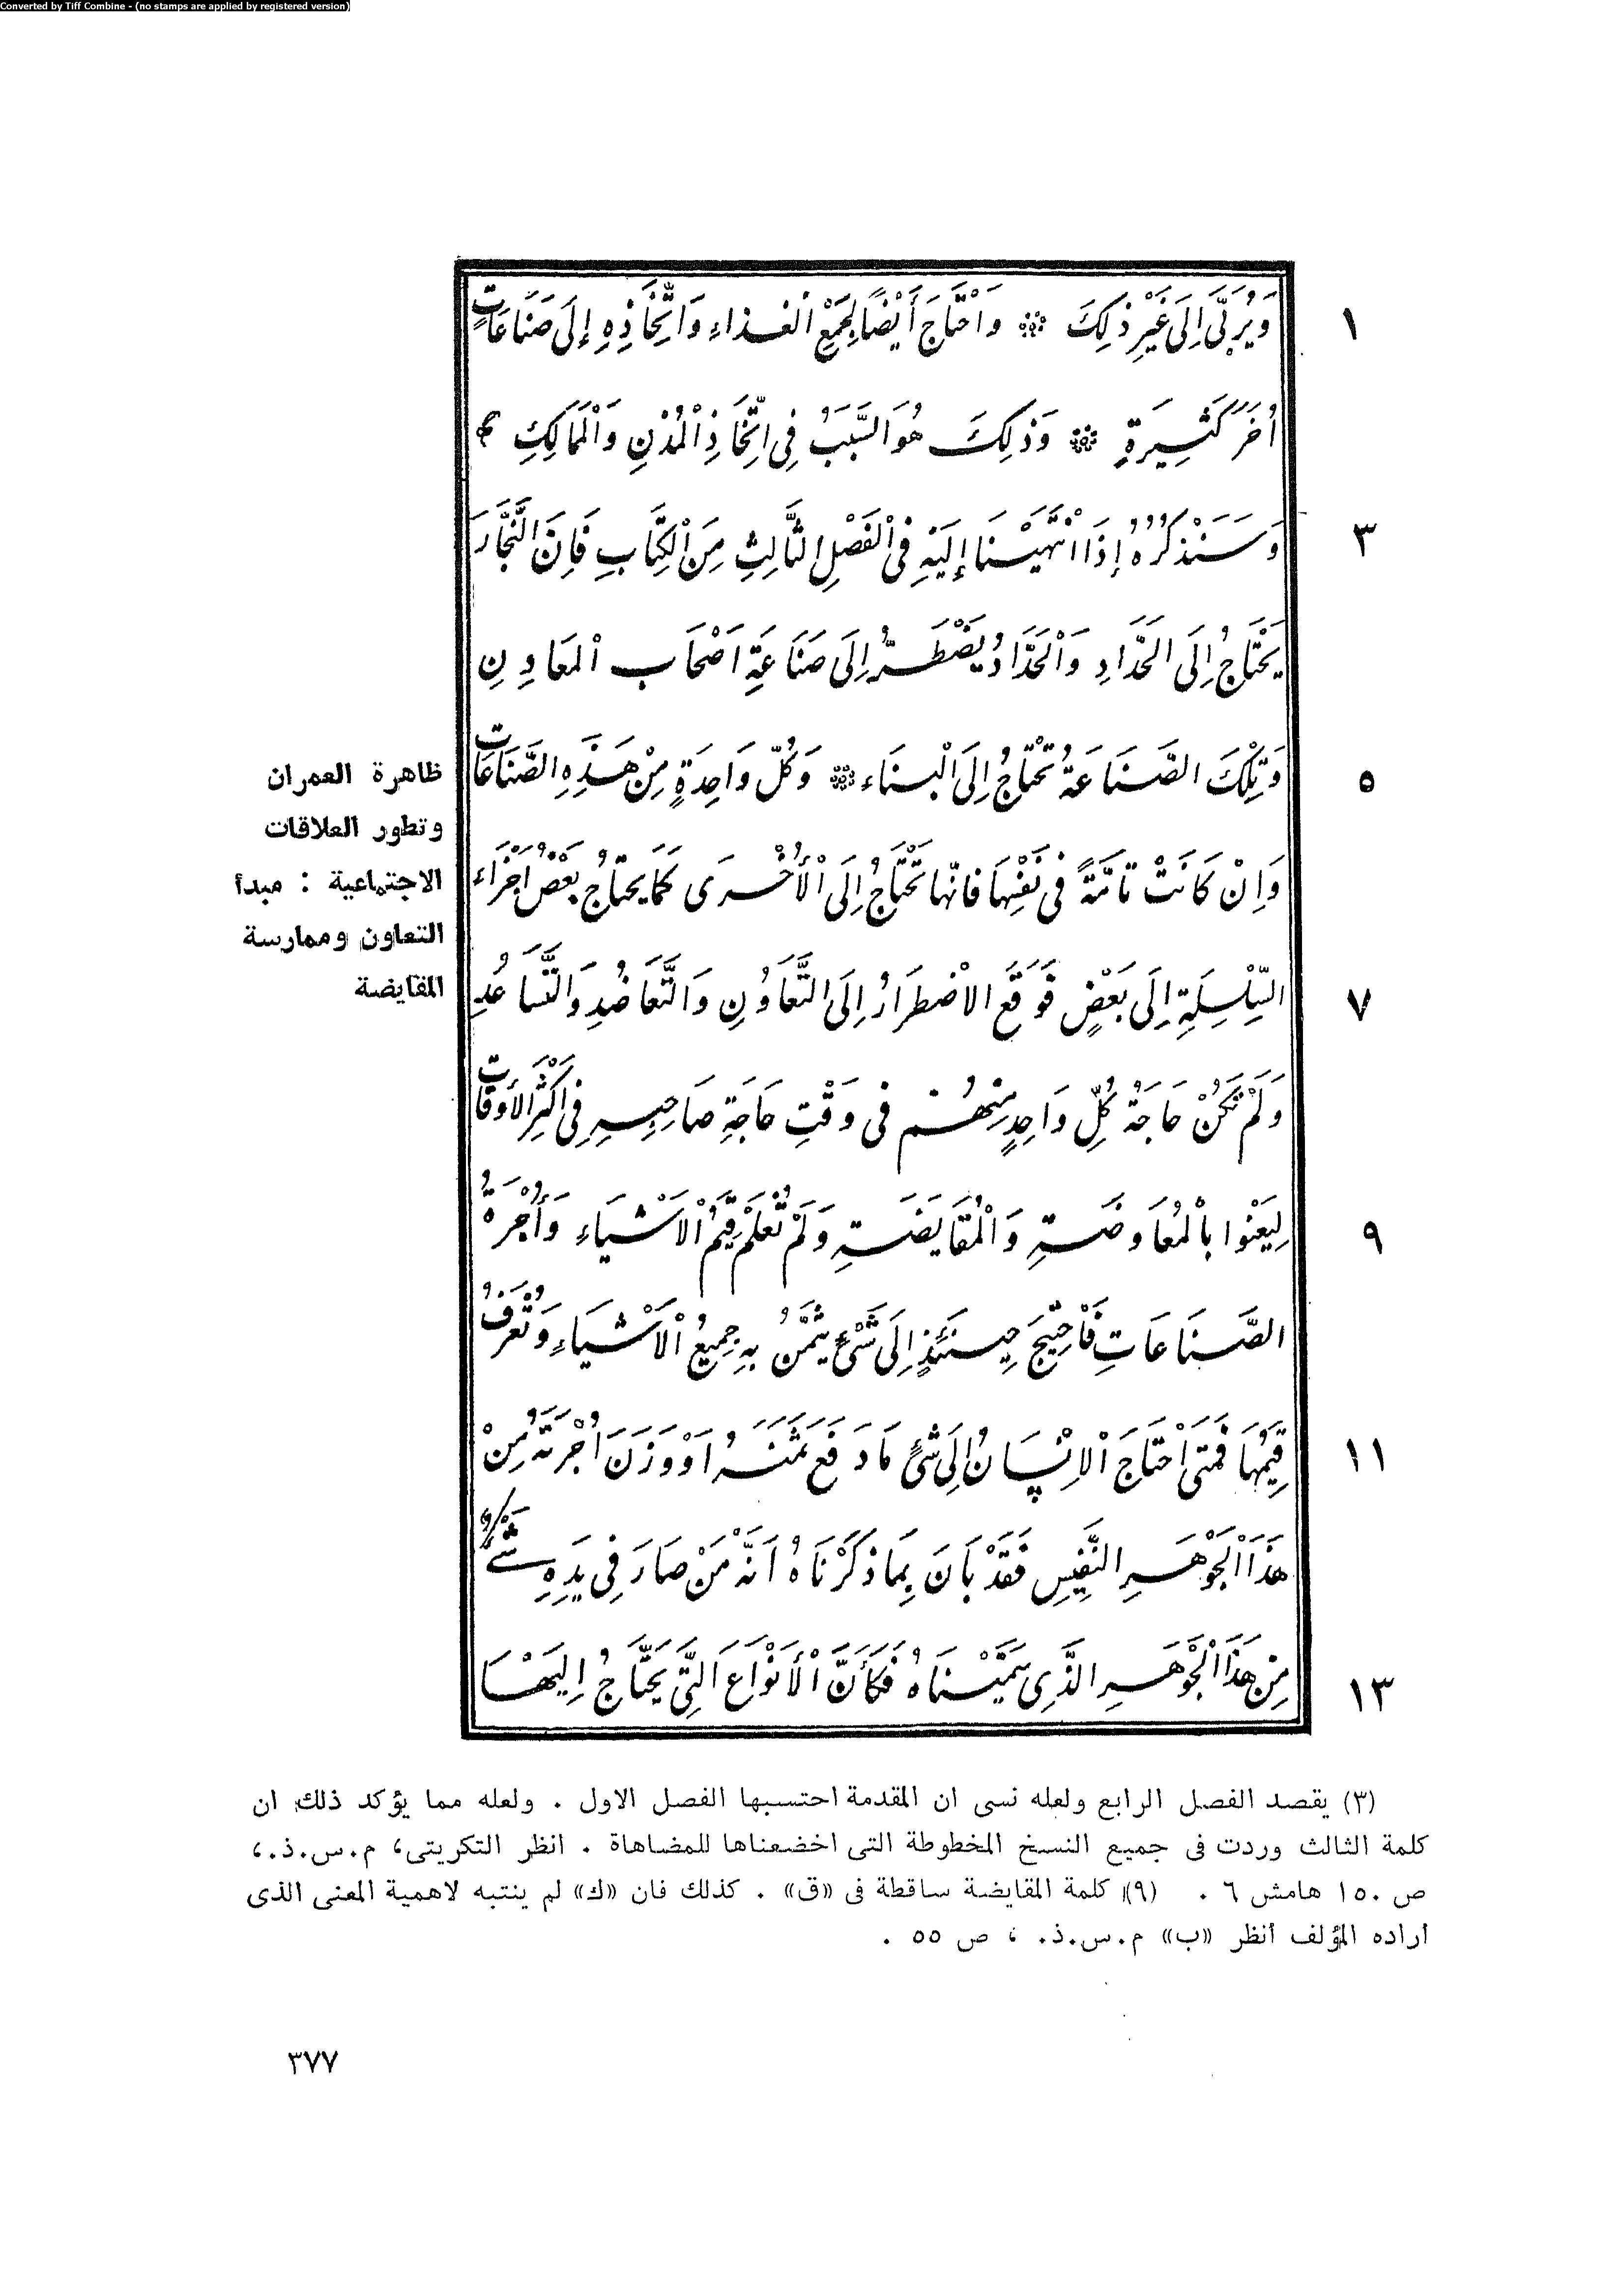 Converted by Tiff Combine - (no stamps are applied by registered version)
١ وَيُرَبَّى إِلَى غَيْرِ ذَلِكَ ۞ وَاحْتَاجَ أَيْضًا لِجَمْعِ الْغذَاءِ وَاتِّخَاذِهِ إِلَى صَنَاعَاتٍ
أُخَرَ كَثِيرَةٍ ۞ وَذَلِكَ هُوَ السَّبَبُ فِي اتِّخَاذِ الْمُدُنِ وَالْمَمَالِكِ
٣ وَسَنَذْكُرُهُ إِذَا انْتَهَيْنَا إِلَيْهِ فِي الْفَصْلِ الثَّالِثِ مِنَ الْكِتَابِ فَإِنَّ النَّجَّارَ
يَحْتَاجُ إِلَى الْحَدَّادِ وَالْحَدَّادُ يَضْطَرُّ إِلَى صَنَاعَةِ أَصْحَابِ الْمَعَادِنِ
٥ وَتِلْكَ الصَّنَاعَةُ تَحْتَاجُ إِلَى الْبنَاء ۞ وَكُلّ وَاحِدَةٍ مِنْ هَذِهِ الصَّنَاعَاتِ
وَإِنْ كَانَتْ تَامَّةً فِي نَفْسِهَا فَانّها تَحْتَاجُ إِلَى الْأُخْرَى كَمَا يحتاجُ بَعْضُ أَجْزَاء
٧ السِّلْسِلَةِ إِلَى بَعْضٍ فَوَقَعَ الاضْطرَارُ إِلَى التَّعَاوُنِ وَالتَّعَاضُدِ وَالتَّسَاعُدِ
وَلَمْ تَكُنْ حَاجَةُ كُلِّ وَاحِدٍ مِنْهُمْ فِي وَقْتِ حَاجَةِ صَاحِبِهِ فِي أَكْثَرِ الأَوْقَاتِ
٩ لِيَعْنُوا بِالْمُعَاوضَةِ وَالْمُقَايَضَةِ وَلَمْ تُعْلَمْ قِيَمُ الْأَشْيَاءِ وَأُجْرَةُ
الصَّنَاعَاتِ فَاحْتِيجَ حِينَئِذٍ إِلَى شَيْءٍ يُثَمَّنُ بِهِ جَمِيعُ الْأَشْيَاءِ وَتُعْرَفُ
١١ قِيَمُهَا فَمَتَى احْتَاجَ الْإِنْسَانُ إِلَى شَيْءٍ مَا دَفَعَ ثَمَنَهُ أَوْ وَزَنَ أُجْرَتَهُ مِنْ
هَذَا الْجَوْهَرِ النَّفِيسِ فَقَدْ بَانَ بِمَا ذكَرْنَاهُ أَنَّهُ مَنْ صَارَ فِي يَدِهِ شَيْءٌ
١٣ مِنْ هَذَا الْجَوْهَرِ الَّذِي سَمَّيْنَاهُ فَكَأَنَّ الْأَنْوَاعَ الَّتِي يَحْتَاجُ إِلَيْهَا
ظاهرة العمران
وتطور العلاقات
الاجتماعية : مبدأ
التعاون وممارسة
المقايضة
(٣) يقصد الفصل الرابع ولعله نسى ان المقدمة احتسبها الفصل الاول . ولعله مما يؤكد ذلك ان
كلمة الثالث وردت فى جميع النسخ المخطوطة التى اخضعناها للمضاهاة . انظر التكريتى، م.س.ذ.،
ص ١٥٠ هامش ٦ . (٩) كلمة المقايضة ساقطة فى «ق» . كذلك فان «ك» لم ينتبه لاهمية المعنى الذى
اراده المؤلف أنظر «ب» م.س.ذ. ، ص ٥٥ .
٣٧٧